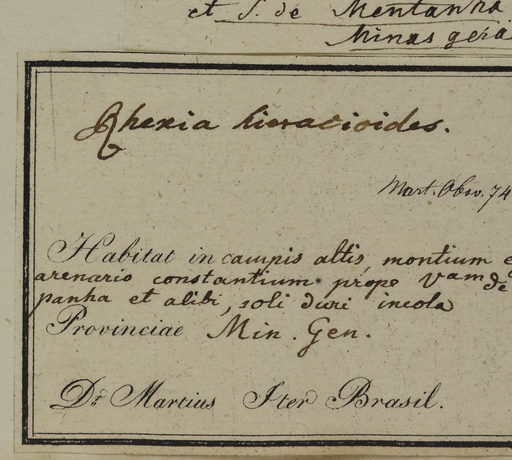 et S. de Mentanha
Minas gera
Rhexia hieracioides.
Mart. Obsv. 74
Habitat in campis altis, montium e
arenario constantium prope Vam de
panha et alibi, soli duri incola
Provinciae Min. Gen.
Dr. Martius Iter Brasil.